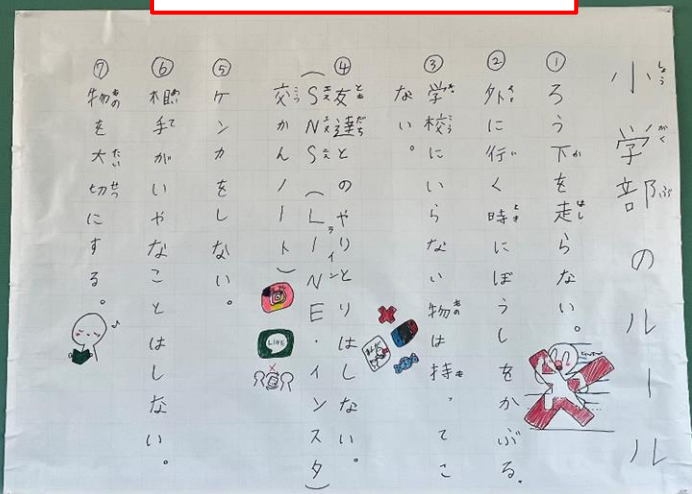 小学部のルール
①ろう下を走らない。
②外に行く時にぼうしをかぶる。
③学校にいらない物は持ってこ
ない。
④友達とのやりとりはしない。
(SNS(LINE・インスタ)
交かんノート)
⑤ケンカをしない。
⑥相手がいやなことはしない。
⑦物を大切にする。
LINE